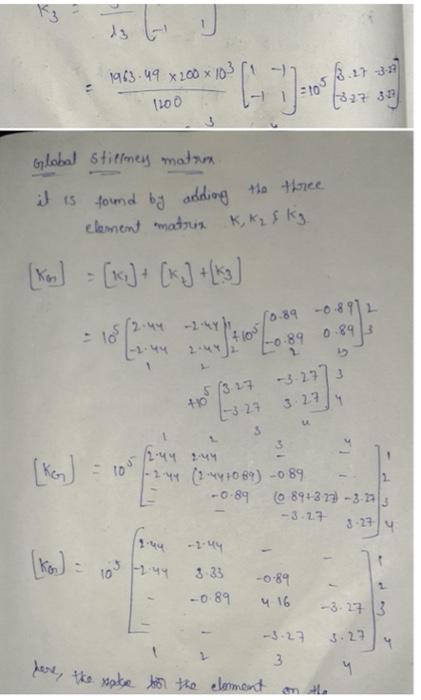 K3 = 
l3 [-1 1]
= 1963.49 × 200 × 10³ / 1200 [1 -1] = 10⁵ [3.27 -3.27]
[-1 1] [-3.27 3.27]
3 4
Global stiffness matrix
it is found by adding the three
element matrix K, K2 & K3.
[KG] = [K1] + [K2] + [K3]
= 10⁵ [2.44 -2.44] 1 + 10⁵ [0.89 -0.89] 2
[-2.44 2.44] 2 [-0.89 0.89] 3
1 2 2 3
+10⁵ [3.27 -3.27] 3
[-3.27 3.27] 4
3 4
1 2 3 4
[KG] = 10⁵ [2.44 2.44 - -] 1
[-2.44 (2.44+0.89) -0.89 -] 2
[- -0.89 (0.89+3.27) -3.27] 3
[- - -3.27 3.27] 4
[KG] = 10⁵ [2.44 -2.44 - -] 1
[-2.44 3.33 -0.89 -] 2
[- -0.89 4.16 -3.27] 3
[- - -3.27 3.27] 4
1 2 3 4
here, the value for the element on the